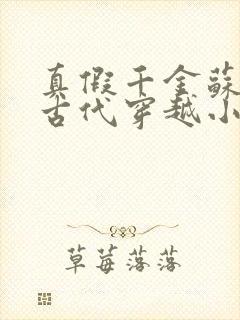 真假千金蘇
古代穿越小
草莓落落